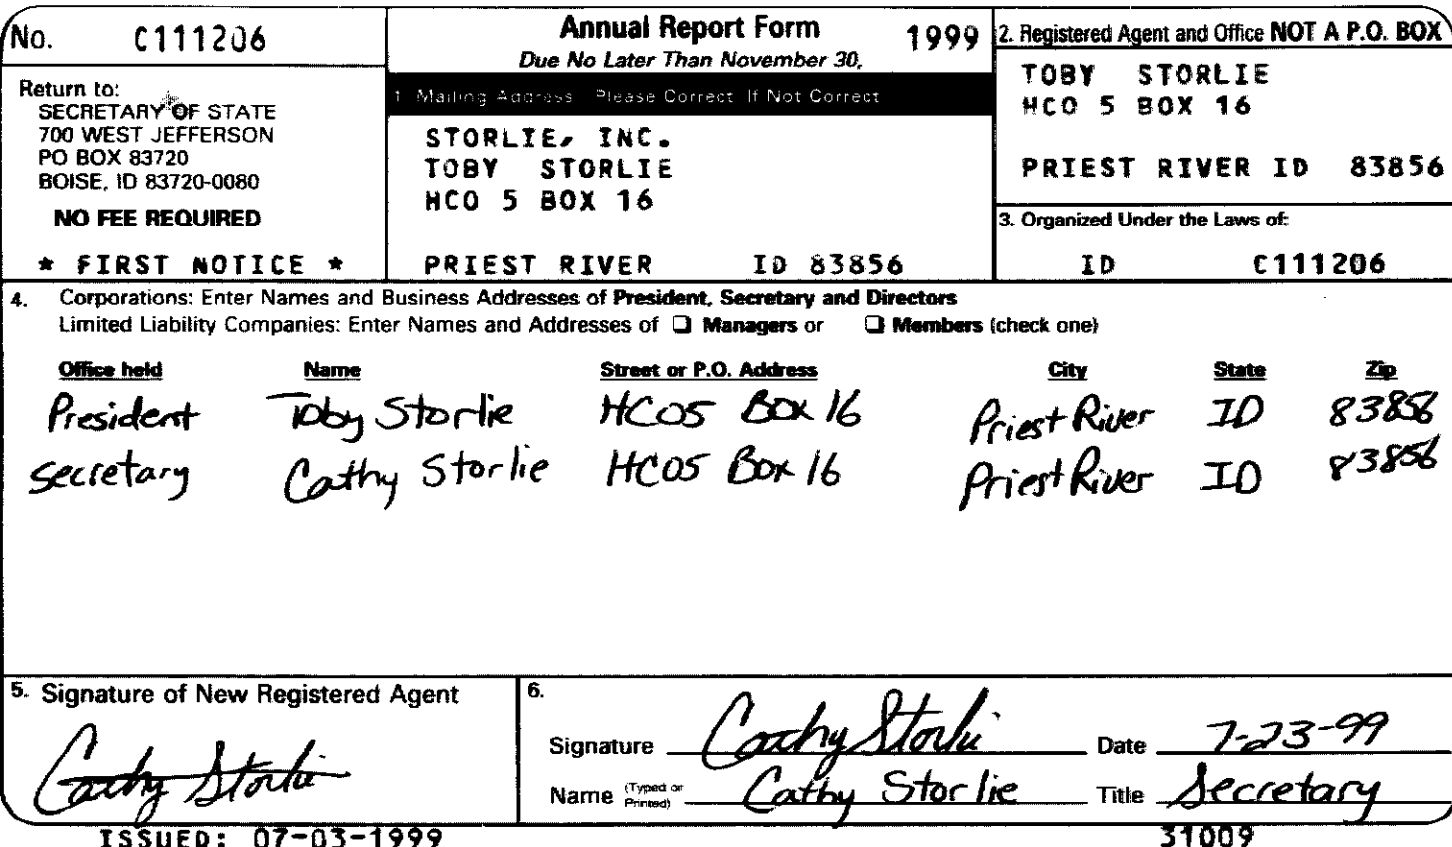 No. C111206
Return to:
SECRETARY OF STATE
700 WEST JEFFERSON
PO BOX 83720
BOISE, ID 83720-0080
NO FEE REQUIRED
* FIRST NOTICE *
Annual Report Form 1999
Due No Later Than November 30,
1 Mailing Address Please Correct If Not Correct
STORLIE, INC.
TOBY STORLIE
HCO 5 BOX 16
PRIEST RIVER ID 83856
2. Registered Agent and Office NOT A P.O. BOX
TOBY STORLIE
HCO 5 BOX 16
PRIEST RIVER ID 83856
3. Organized Under the Laws of:
ID C111206
4. Corporations: Enter Names and Business Addresses of President, Secretary and Directors
Limited Liability Companies: Enter Names and Addresses of ❑ Managers or ❑ Members (check one)
Office held Name Street or P.O. Address City State Zip
President Toby Storlie HCO5 Box 16 Priest River ID 83856
Secretary Cathy Storlie HCO5 Box 16 Priest River ID 83856
5. Signature of New Registered Agent
Cathy Storlie
6.
Signature Cathy Storlie Date 7-23-99
Name (Typed or Printed) Cathy Storlie Title Secretary
ISSUED: 07-03-1999 31009